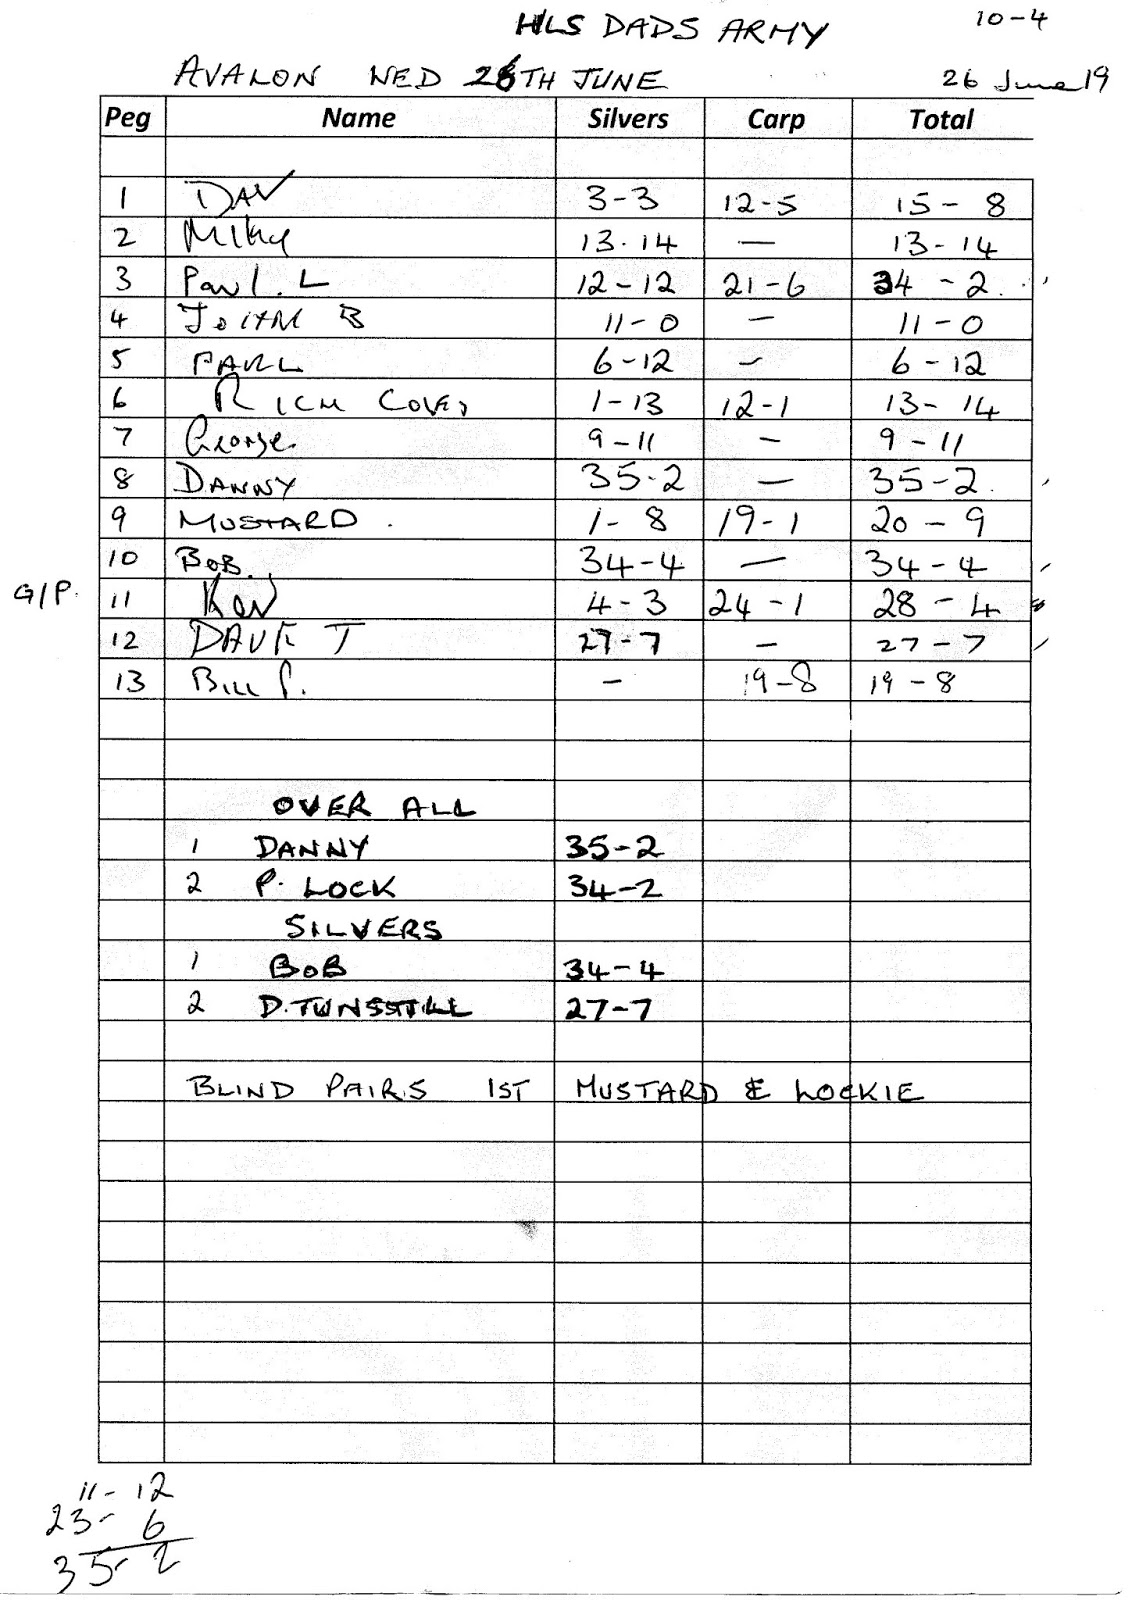 HLS DADS ARMY 10-4
AVALON WED 26TH JUNE 26 June 19
Peg Name Silvers Carp Total
1 DAV 3-3 12-5 15-8
2 Mike 13.14 — 13-14
3 Paul. L 12-12 21-6 34-2
4 JOHN B 11-0 — 11-0
5 PAUL 6-12 — 6-12
6 RICH COLES 1-13 12-1 13-14
7 George. 9-11 — 9-11
8 DANNY 35-2 — 35-2
9 MUSTARD . 1-8 19-1 20-9
10 BOB. 34-4 — 34-4
G/P. 11 Kev 4-3 24-1 28-4
12 DAVE T 27-7 — 27-7
13 BILL P. - 19-8 19-8
OVER ALL
1 DANNY 35-2
2 P. LOCK 34-2
SILVERS
1 BOB 34-4
2 D.TUNSSTILL 27-7
BLIND PAIRS 1ST MUSTARD & LOCKIE
11-12
23-6
35-2